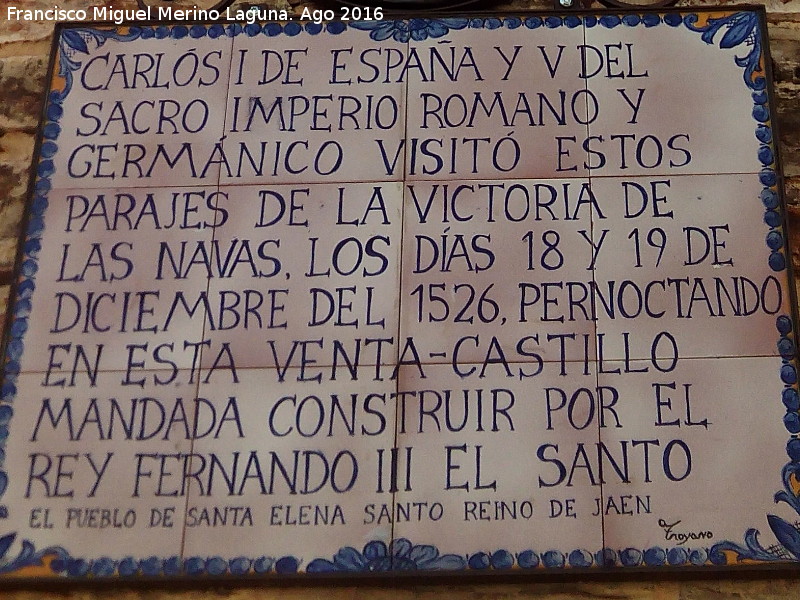 Francisco Miguel Merino Laguna. Ago 2016
CARLÓS I DE ESPAÑA Y V DEL
SACRO IMPERIO ROMANO Y
GERMÁNICO VISITÓ ESTOS
PARAJES DE LA VICTORIA DE
LAS NAVAS, LOS DÍAS 18 Y 19 DE
DICIEMBRE DEL 1526, PERNOCTANDO
EN ESTA VENTA-CASTILLO
MANDADA CONSTRUIR POR EL
REY FERNANDO III EL SANTO
EL PUEBLO DE SANTA ELENA SANTO REINO DE JAEN
Troyano